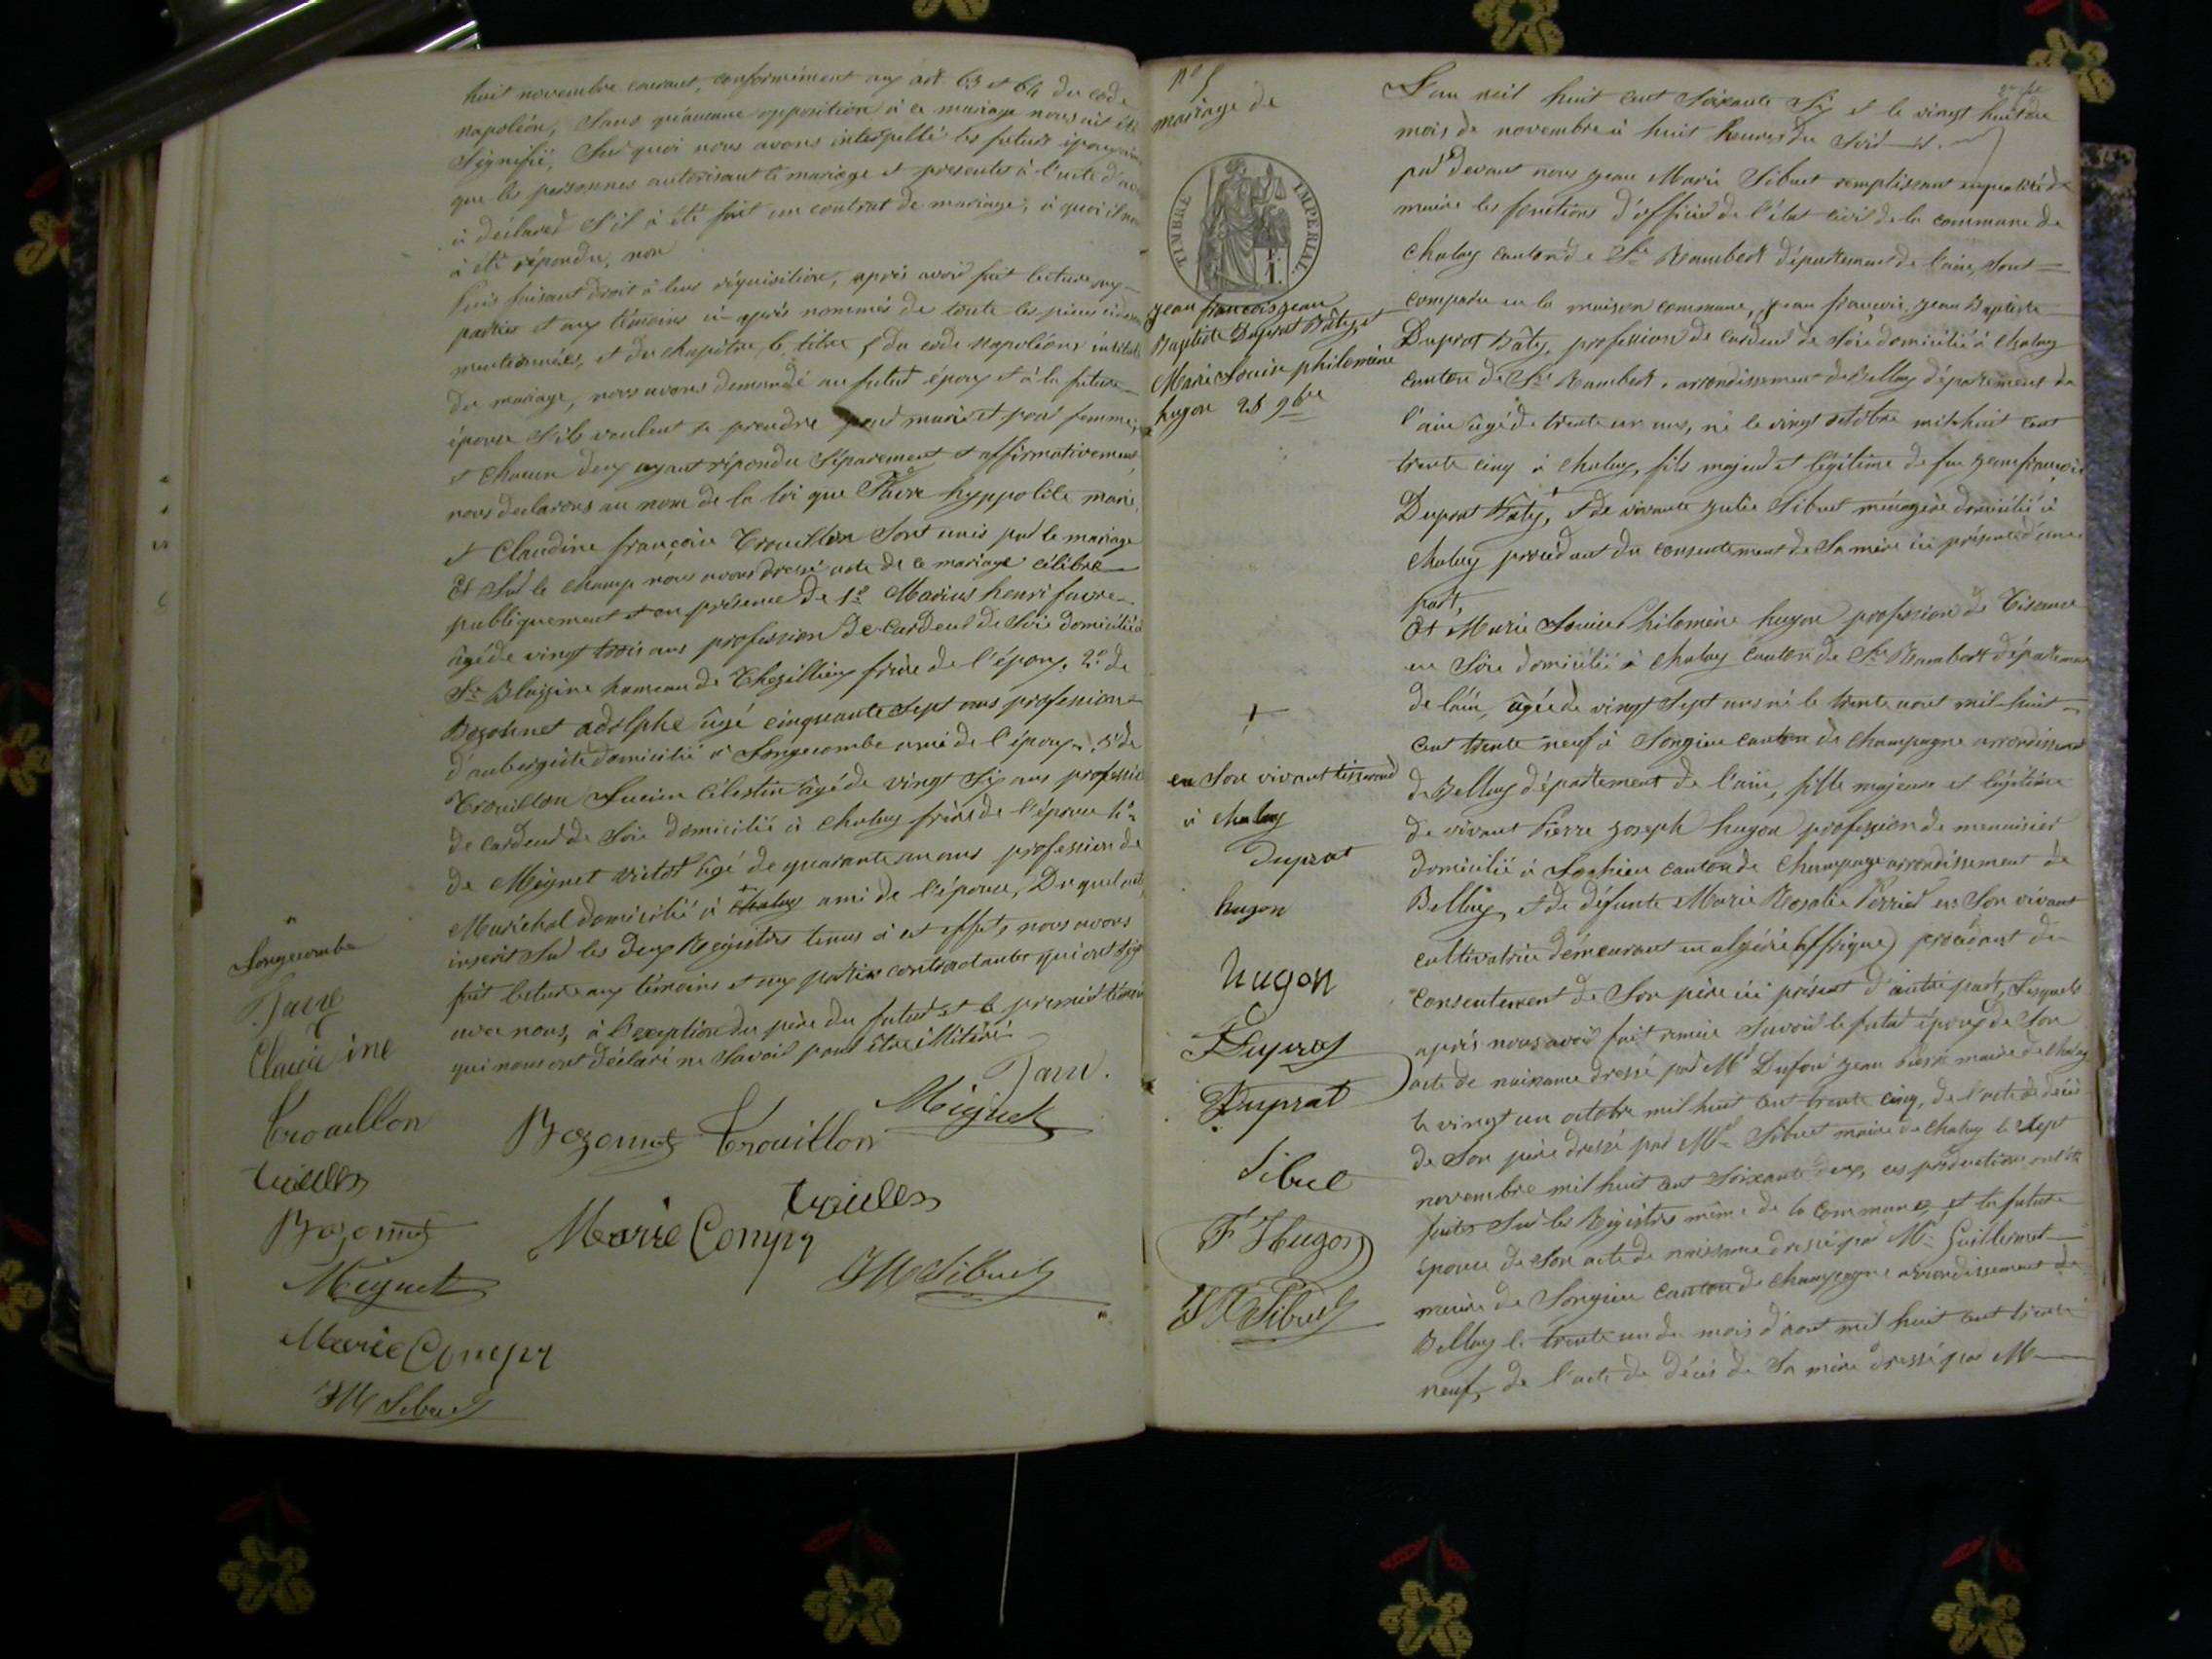 huit novembre courant, conformément aux art. 63 et 64 du code
napoléon, sans qu'aucune opposition à ce mariage nous ait été
signifié, sur quoi nous avons interpellé les futurs époux
que les personnes autorisant le mariage et presentes à l'acte
à déclarer s'il à été fait un contrat de mariage, à quoi il
à été répondu, non
Puis faisant droit à leur réquisition, après avoir fait lecture aux
parties et aux témoins ci-après nommés de toute les pièces
mentionnées, et du chapitre 6, titre 5 du code napoléons intitulé
du mariage, nous avons demandé au futur époux et à la future
épouse s'ils veulent se prendre pour mari et pour femme,
et chacun deux ayant répondu séparement et affirmativement
nous declarons au nom de la loi que Favre hyppolite marie
et Claudine françoise Trouillon sont unis par le mariage
Et sur le champ nous avons dressé acte de ce mariage célibre
publiquement et en présence de 1º Marius henri favre
âgé de vingt trois ans profession de cardeur de soie domicilié à
St Blazine hameau de Thezillieu frère de l'époux, 2º de
Bozonnet adolphe âgé cinquante sept ans profession
d'aubergiste domicilié à Longecombe ami de l'époux, 3º de
Trouillon Lucien Célestin âgé de vingt six ans profession
de cardeur de soie domicilié à chaley frère de l'épouse 4º
de Miguet victor âgé de quarante un ans profession de
Maréchal domicilié à chaley ami de l'épouse, Du quel acte
inscrit sur les deux Registres tenus à cet effet, nous avons
fait lecture aux témoins et aux parties contractantes qui ont signé
avec nous, à l'exception du père du futur et le premier témoin
qui nous ont déclaré ne savoir pour être illitéré
Longecombe
Favre
Claudine
Trouillon
Bozonnet
Miguet
Marie Compy
JM Sibuet
Favre.
Miguet
Bozonnet Trouillon
Marie Compy
JM Sibuet
nº 5
mariage de
TIMBRE IMPERIAL
jean françois jean
Baptiste Duprat Bâty, et
Marie Louise philomène
hugon 28 9bre
en son vivant tisserand
à chaley
Duprat
hugon
hugon
Duprat
Duprat
Sibuet
F Hugon
JM Sibuet
L'an mil huit cent soixante six et le vingt huit du
mois de novembre à huit heures du soir
par devant nous jean Marie Sibuet remplissant en qualité de
maire les fonctions d'officier de l'état civil de la commune de
chaley canton de St Rambert département de l'ain, sont
comparu en la maison commune, jean françois jean Baptiste
Duprat Bâty, profession de cardeur de soie domicilié à chaley
canton de St Rambert, arrondissement de Belley département de
l'ain âgé de trente un ans, né le vingt octobre mil huit cent
trente cinq à chaley, fils majeur et légitime de feu jean françois
Duprat Bâty, et de vivante julie Sibuet ménagère domicilié à
chaley procedant du consentement de sa mère ici présente d'une
part,
Et Marie Louise Philomène hugon profession de Tisseuse
en soie domicilié à chaley canton de St Rambert département
de l'ain, âgée de vingt sept ans né le trente aout mil huit
cent trente neuf à Songieu canton de champagne arrondissement
de Belley département de l'ain, fille majeure et légitime
de vivant Pierre joseph hugon profession de menuisier
domicilié à Lochieu canton de Champagne arrondissement de
Belley, et de défunte Marie Rosalie Perrier en son vivant
cultivatrice demeurant en algérie (affrique) procédant du
consentement de son père ici présent d'autre part, Lesquels
après nous avoir fait remise savoir le futur époux de son
acte de naissance dressé par Mr Dufour jean Pierre maire de chaley
le vingt un octobre mil huit cent trente cinq, de l'acte de décès
de son père dressé par Mr Sibuet maire de chaley le sept
novembre mil huit cent soixante deux, ces productions ont été
faites sur les Registres même de la commune, et la future
épouse de son acte de naissance dressé par Mr Guillermet
maire de Songieu canton de champagne arrondissement de
Belley le trente un du mois d'aout mil huit cent trente
neuf, de l'acte de décès de sa mère dressé par M